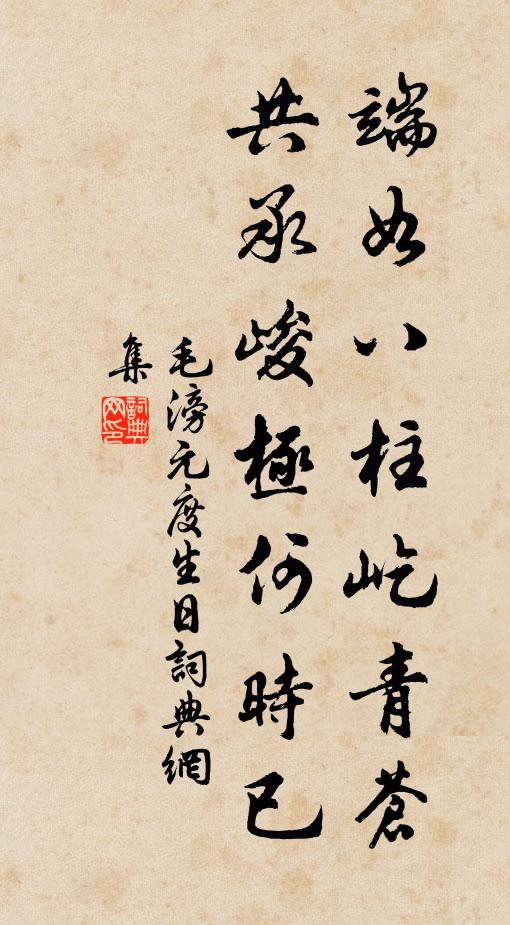 端如八柱屹青苍
共承峻極何時已
毛滂元度生日詞典網
集
詞典网印